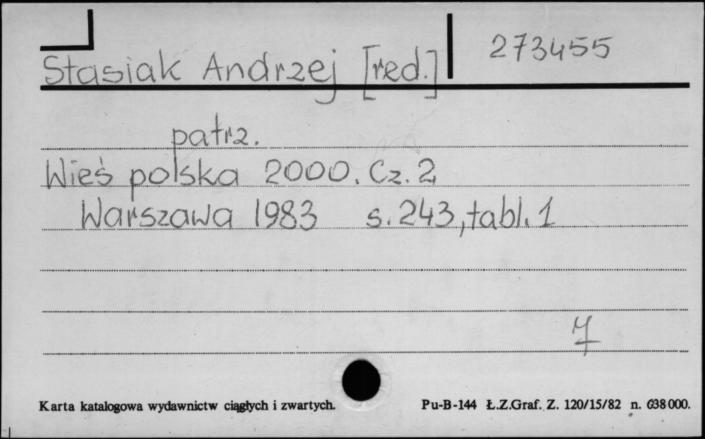 Stasiak Andrzej [red.] 273455
patrz.
Wieś polska 2000. Cz. 2
Warszawa 1983 s. 243, tabl. 1
Karta katalogowa wydawnictw ciągłych i zwartych. Pu-B-144 Ł.Z.Graf. Z. 120/15/82 n. 638000.